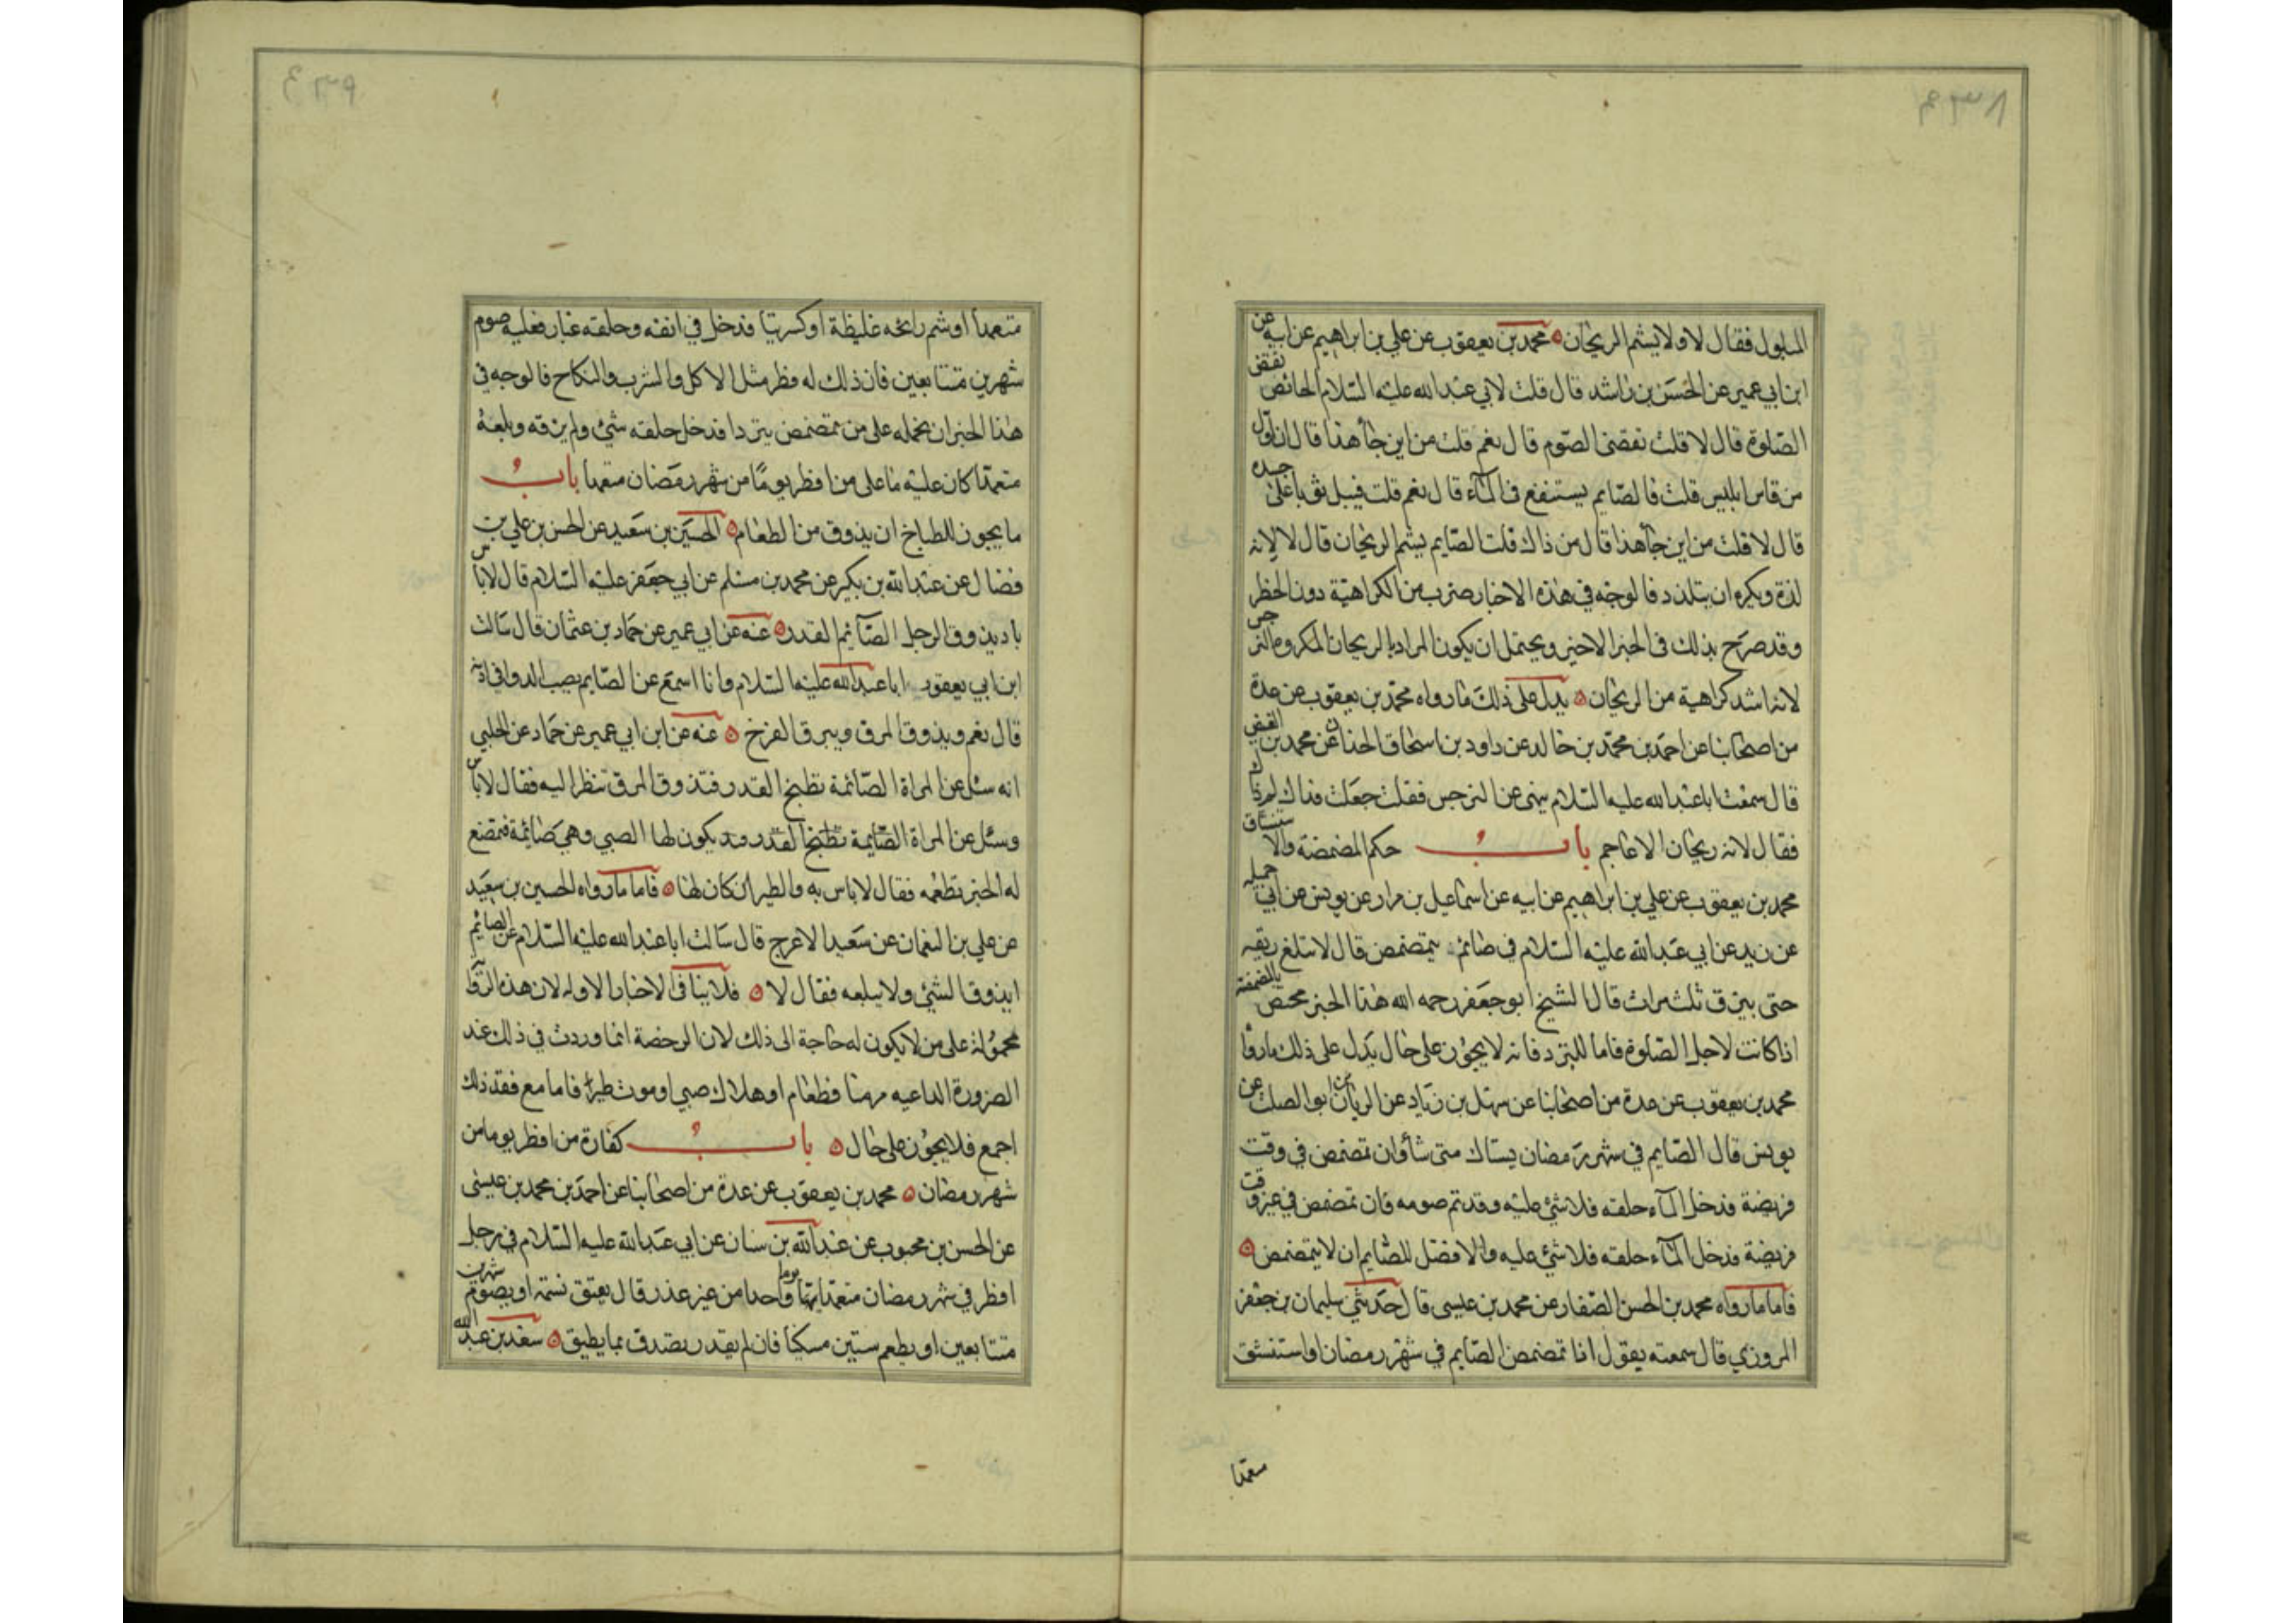 المبلول فقال لا ولا يشم الريحان محمد بن يعقوب عن علي بن ابراهيم عن ابيه عن
ابن ابي عمير عن الحسن بن راشد قال قلت لابي عبد الله عليه السلام الحائض تقضي
الصلوة قال لا قلت تقضى الصوم قال نعم قلت من اين جاء هذا قال ان اول
من قاس ابليس قلت فالصايم يستنقع في المآء قال نعم قلت فيبل ثوبا على جسده
قال لا قلت من اين جاء هذا قال من ذاك قلت الصايم يشم الريحان قال لا لانه
لذة ويكره ان يتلذذ فالوجه في هذه الاخبار ضرب من الكراهية دون الحظر
وقد صرح بذلك في الخبر الاخير ويحتمل ان يكون المراد بالريحان المكروه النرجس
لانه اشد كراهية من الريحان يدل على ذلك ما رواه محمد بن يعقوب عن عدة
من اصحابنا عن احمد بن محمد بن خالد عن داود بن اسحاق الحذاء عن محمد بن الفيض
قال سمعت ابا عبد الله عليه السلام ينهى عن النرجس فقلت جعلت فداك لم ذاك
فقال لانه ريحان الاعاجم باب حكم المضمضة والاستنشاق
محمد بن يعقوب عن علي بن ابراهيم عن ابيه عن اسماعيل بن مرار عن يونس عن ابي جميله
عن زيد عن ابي عبد الله عليه السلام في صائم يتمضمض قال لا يبلغ ريقه
حتى يبزق ثلث مرات قال الشيخ ابو جعفر رحمه الله هذا الخبر مختص بالمضمضة
اذا كانت لاجل الصلوة فاما للتبرد فانه لا يجوز على حال يدل على ذلك ما رواه
محمد بن يعقوب عن عدة من اصحابنا عن سهل بن زياد عن الريان بن الصلت عن
يونس قال الصايم في شهر رمضان يستاك متى شاء وان تمضمض في وقت
فريضة فدخل المآء حلقه فلا شيء عليه وقد تم صومه فان تمضمض في غير وقت
فريضة فدخل المآء حلقه فلا شيء عليه والافضل للصايم ان لا يتمضمض
فاما ما رواه محمد بن الحسن الصفار عن محمد بن عيسى قال حدثني سليمان بن جعفر
المروزي قال سمعته يقول اذا تمضمض الصايم في شهر رمضان او استنشق
متعمدا
متعمدا او شم رايحه غليظة او كنس بيتا فدخل في انفه وحلقه غبار فعليه صوم
شهرين متتابعين فان ذلك له فطر مثل الاكل والشرب والنكاح فالوجه في
هذا الخبر ان يحمله على من تمضمض تبردا فدخل حلقه شيء ولم يبزقه وبلعه
متعمدا كان عليه ما على من افطر يوما من شهر رمضان متعمدا باب
ما يجوز للطباخ ان يذوق من الطعام الحسين بن سعيد عن الحسن بن علي بن
فضال عن عبد الله بن بكير عن محمد بن مسلم عن ابي جعفر عليه السلام قال لا باس
بان يذوق الرجل الصآئم القدر عنه عن ابي عمير عن حماد بن عثمان قال سالت
ابن ابي يعقوب ابا عبد الله عليه السلام وانا اسمع عن الصايم يصب الدوا في اذنه
قال نعم ويذوق المرق ويزق الفرخ عنه عن ابن ابي عمير عن حماد عن الحلبي
انه سئل عن المراة الصائمة تطبخ القدر فتذوق المرق تنظر اليه فقال لا باس
وسئل عن المراة الصايمة تطبخ القدر وقد يكون لها الصبي وهي صائمة فتمضغ
له الخبز تطعمه فقال لا باس به والطير ان كان لها فاما ما رواه الحسين بن سعيد
عن علي بن النعمان عن سعيد الاعرج قال سالت ابا عبد الله عليه السلام عن الصايم
ايذوق الشيء ولا يبلعه فقال لا فلا ينافي الاخبار الاوله لان هذه الرواية
محمولة على من لا يكون له حاجة الى ذلك لان الرخصة انما وردت في ذلك عند
الضرورة الداعيه من فطعام او هلاك صبي او موت طير فاما مع فقد ذلك
اجمع فلا يجوز على حال باب كفارة من افطر يوما من
شهر رمضان محمد بن يعقوب عن عدة من اصحابنا عن احمد بن محمد بن عيسى
عن الحسن بن محبوب عن عبد الله بن سنان عن ابي عبد الله عليه السلام في رجل
افطر في شهر رمضان متعمدا يوما واحدا من غير عذر قال يعتق نسمة او يصوم شهرين
متتابعين او يطعم ستين مسكينا فان لم يقدر تصدق بما يطيق سعد بن عبد الله